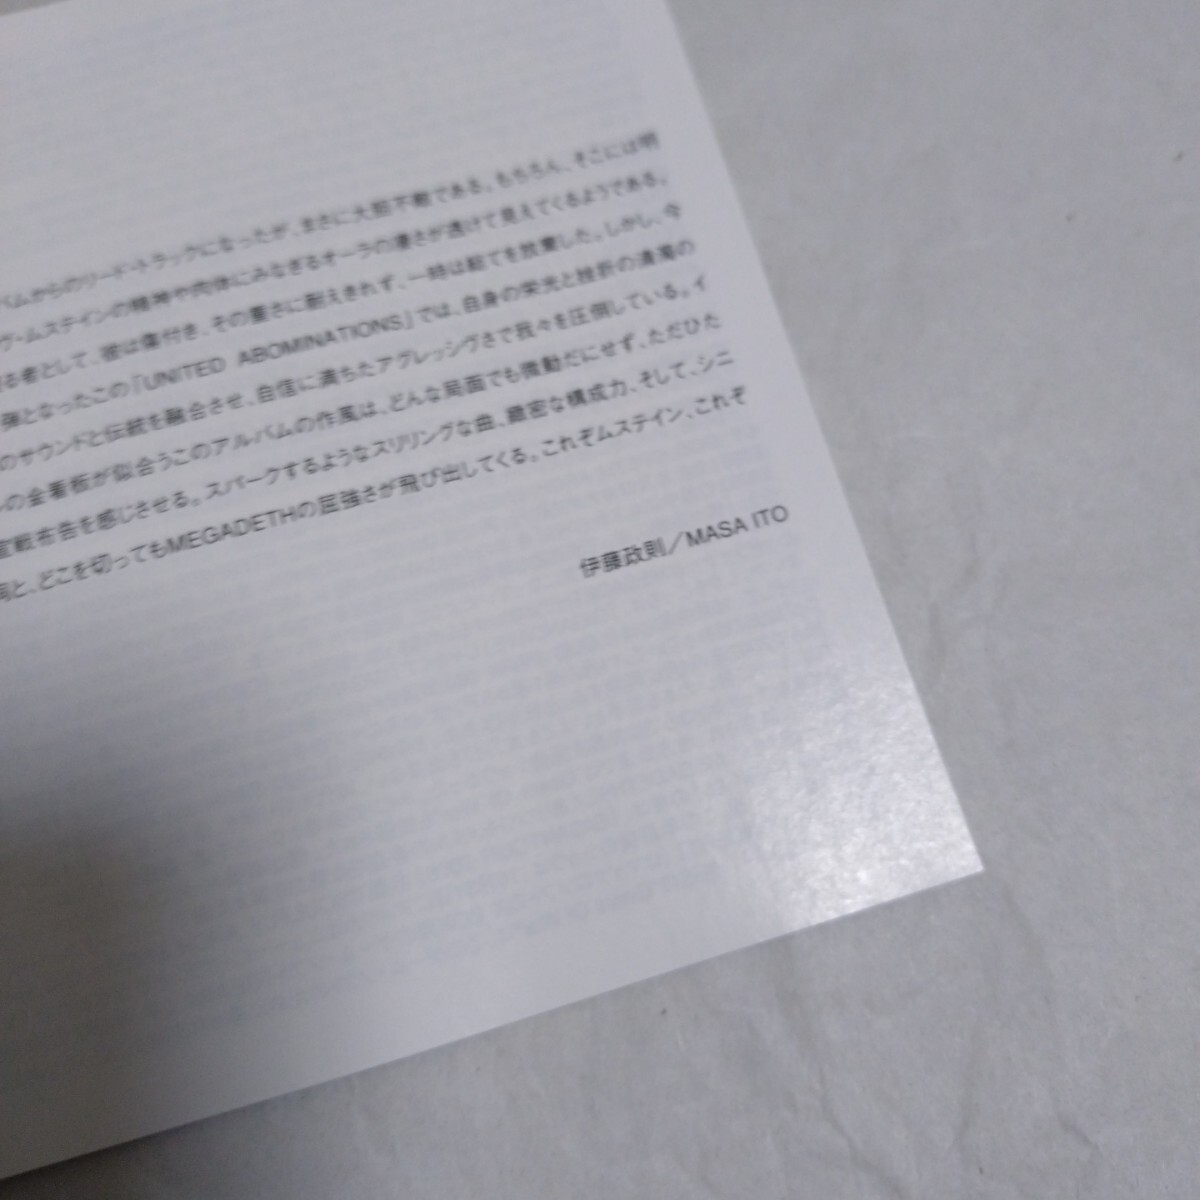 バムからのリード・トラックになったが、まさに大胆不敵である。もちろん、そこには明
ヴ・ムステインの精神や肉体にみなぎるオーラの凄さが透けて見えてくるようである。
る者として、彼は傷付き、その重さに耐えきれず、一時は総てを放棄した。しかし、今
弾となったこの「UNITED ABOMINATIONS」では、自身の栄光と挫折の過去の
のサウンドと伝統を融合させ、自信に満ちたアグレッシヴさで我々を圧倒している。イ
の金看板が似合うこのアルバムの作風は、どんな局面でも微動だにせず、ただひた
宣戦布告を感じさせる。スパークするようなスリリングな曲、緻密な構成力、そして、シニ
詞と、どこを切ってもMEGADETHの屈強さが飛び出してくる。これぞムステイン、これぞ
伊藤政則／MASA ITO